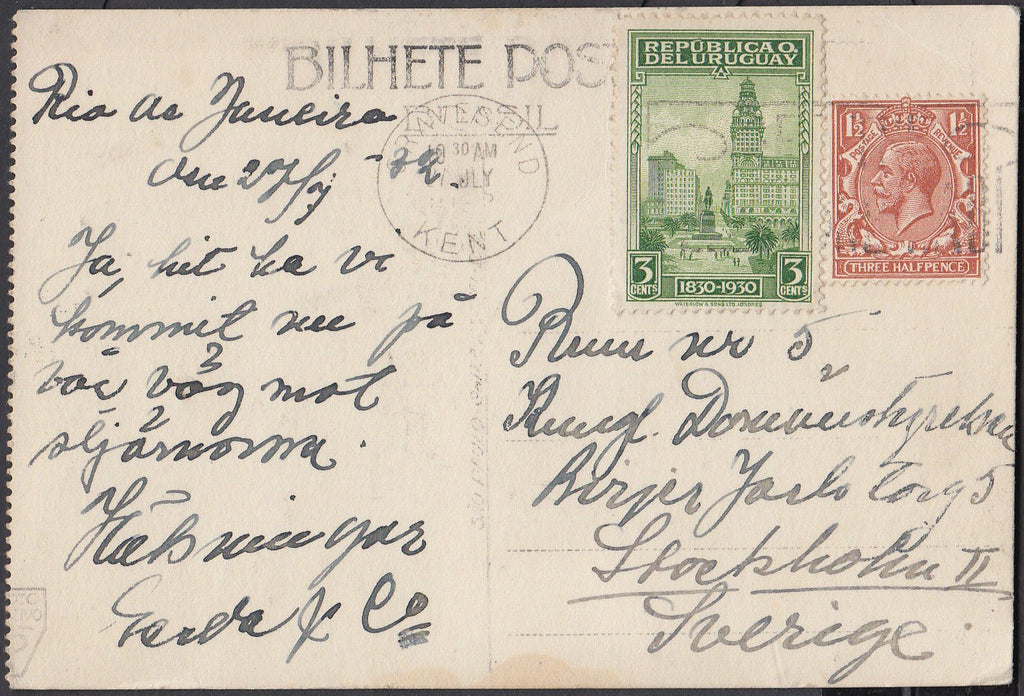 BILHETE POS
Rio de Janeiro
den 27/ -32.
Ja, hit ha vi
kommit nu på
vår väg mot
stjärnorna.
Hälsningar
Gerda & Co
GRAVESEND
10 30 AM
JULY
KENT
REPÚBLICA O.
DEL URUGUAY
3 CENTS
1830-1930
3 CENTS
WATERLOW & SONS LTD. LONDRES
1½ 1½
POSTAGE REVENUE
THREE HALFPENCE
Rum nr 5
Kungl. Domänstyrelsen
Birger Jarls torg 5
Stockholm II
Sverige